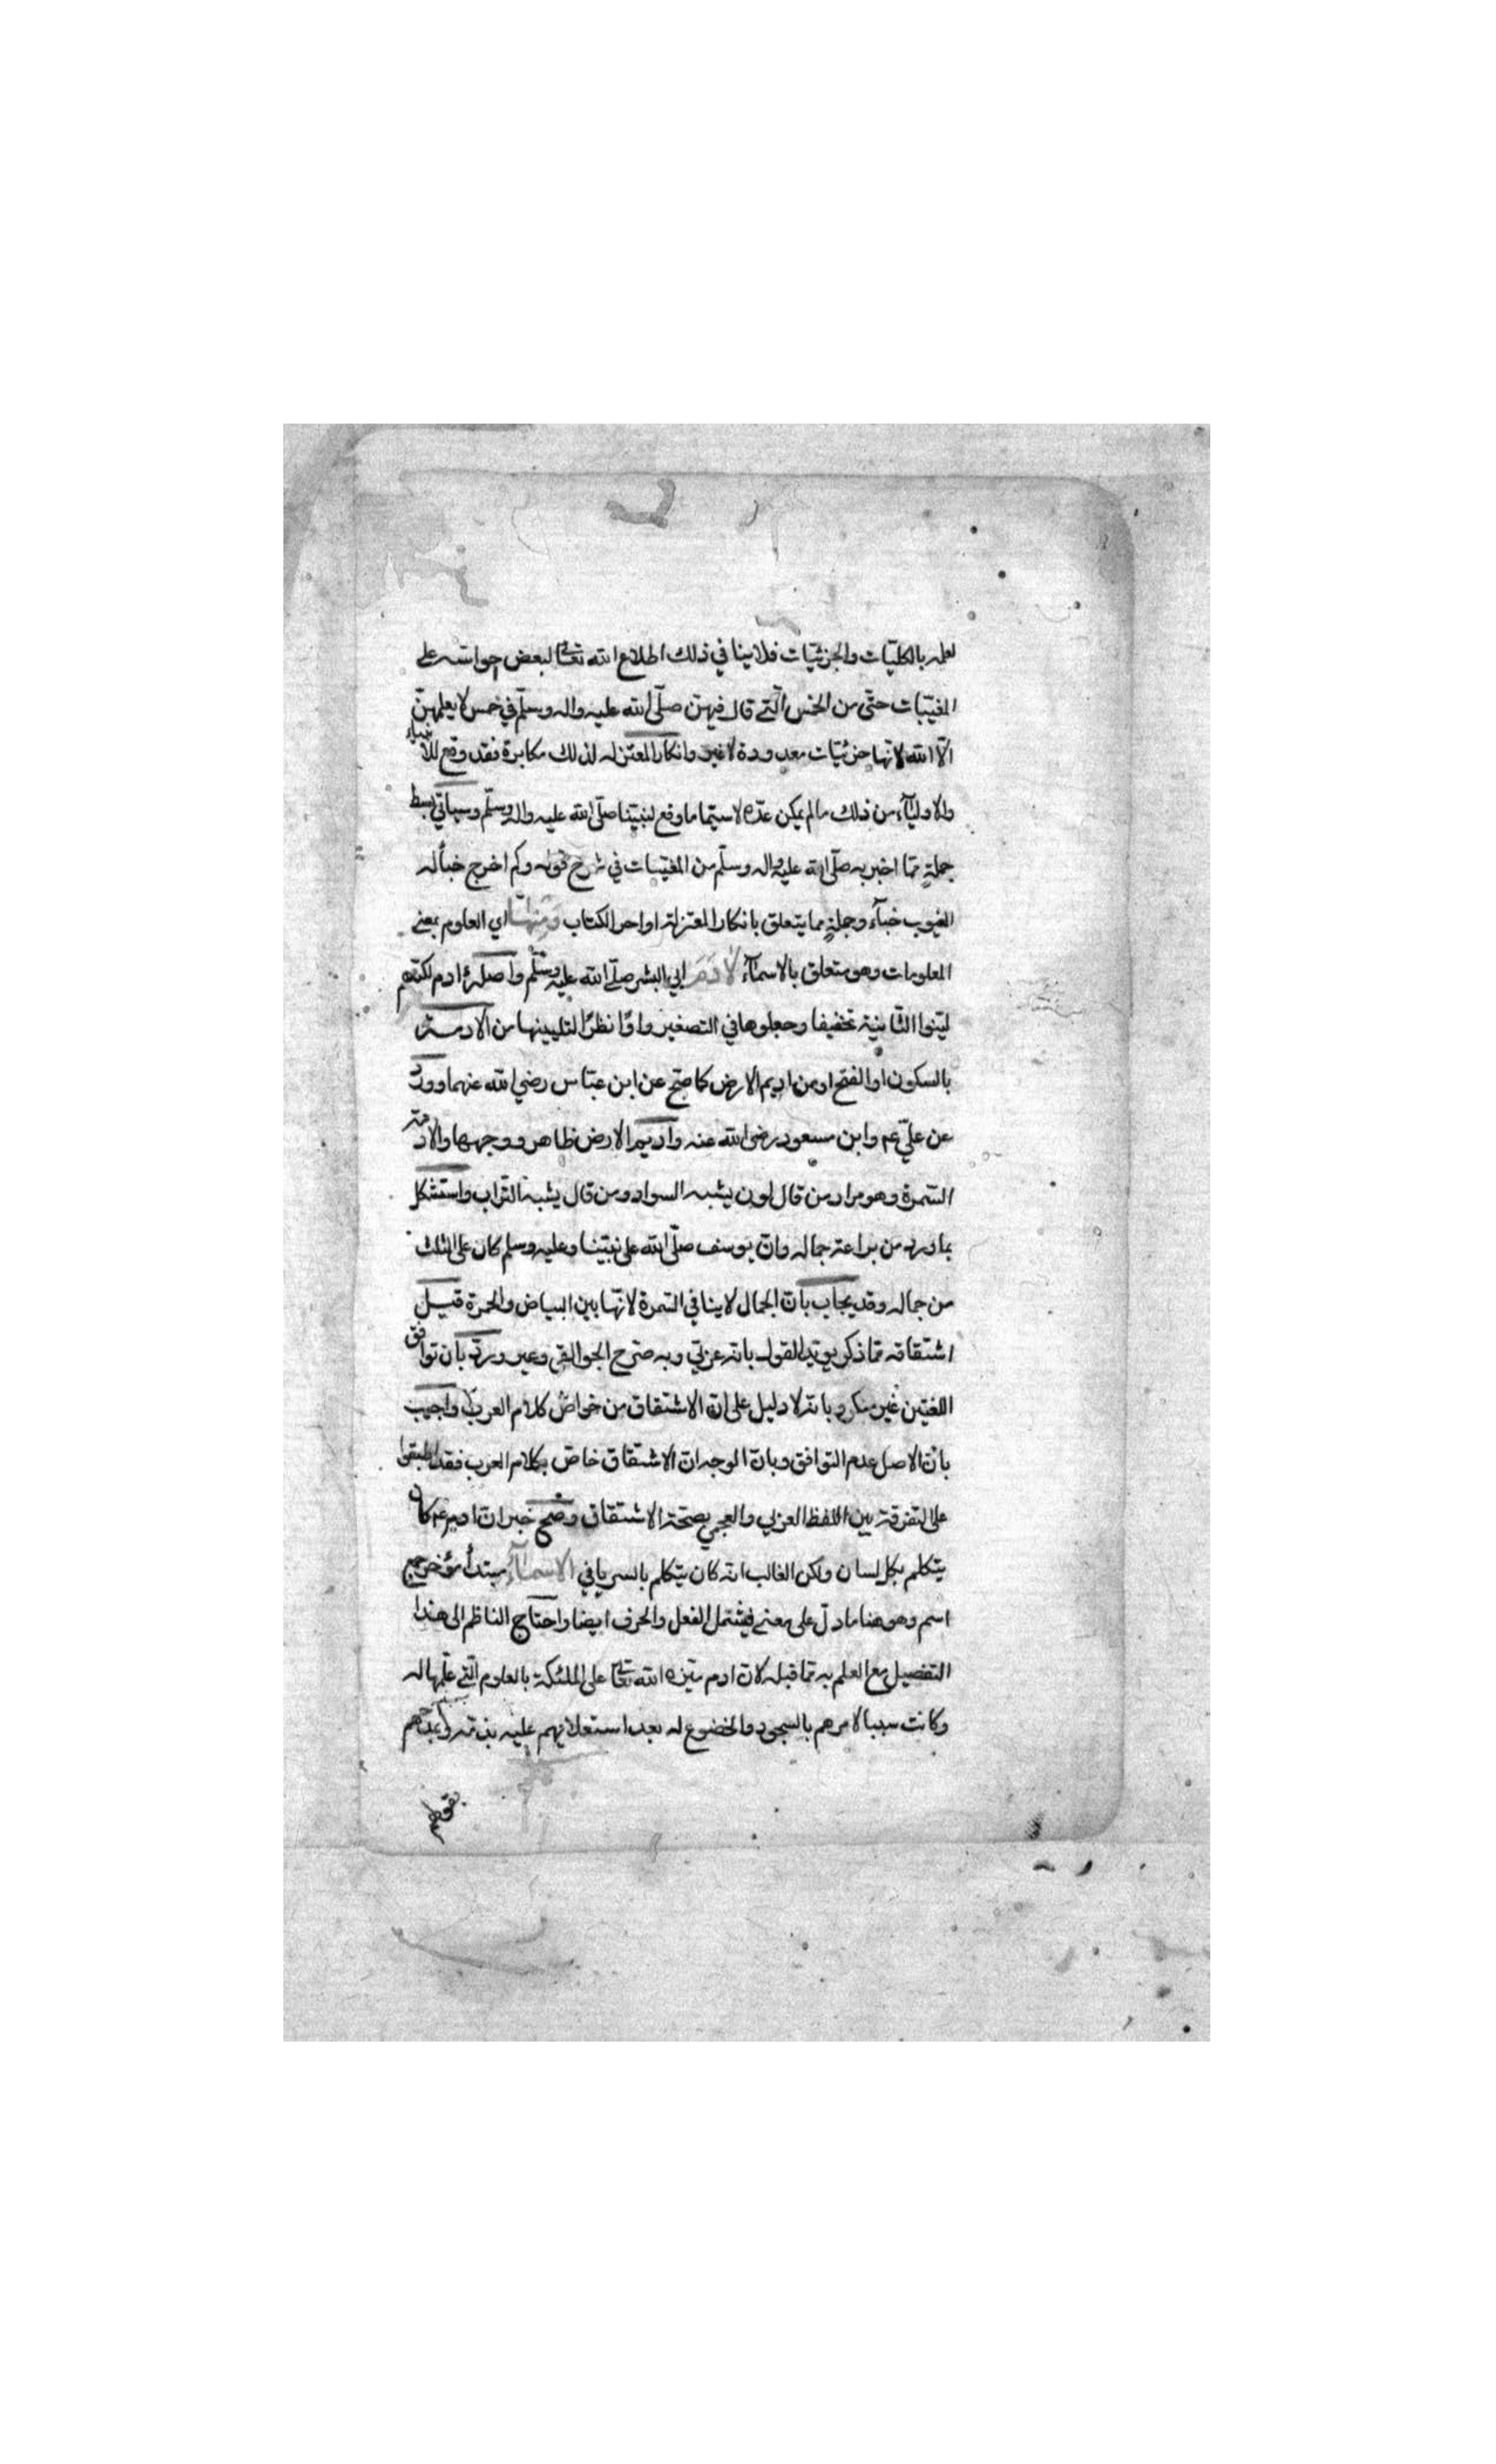 لعلمه بالكليّات والجزئيّات فلا ينافي ذلك اطلاع الله تعالى لبعض خواصه على
المغيّبات حتّى من الخمس الّتي قال فيهنّ صلّى الله عليه واله وسلّم في خمس لا يعلمهنّ
الّا الله لانّها جزئيّات معدودة لا غير وانكار المعتزله لذلك مكابرة فقد وقع للانبياء
والاوليآء من ذلك ما لم يمكن عدّه لا سيّما ما وقع لنبيّنا صلّى الله عليه واله وسلّم وسياتي بسط
جملةٍ ممّا اخبر به صلّى الله عليه واله وسلّم من المغيّبات في شرح قوله وكم اخرج خبأ له
الغيوب خبآء وجملةٍ مما يتعلق بانكار المعتزلة اواخر الكتاب وَمِنْهَا اي العلوم بمعنى
المعلومات وهو متعلق بالاسمآء لِآدَمَ ابي البشر صلّى الله عليه وسلّم واصله أادم لكنّهم
ليّنوا الثّانية تخفيفا وجعلوها في التصغير واوًا نظرًا لتليينها من الادمة
بالسكون او الفتح او من اديم الارض كما صحّ عن ابن عبّاس رضي الله عنهما وورد
عن عليّ عم وابن مسعود رضى الله عنه واديم الارض ظاهر ووجهها والادمة
السّمرة وهو مراد من قال لون يشبه السواد ومن قال يشبه التّراب واستشكل
بما ورد من براعة جماله وانّ يوسف صلّى الله على نبيّنا وعليه وسلم كان على الثلث
من جماله وقد يجاب بانّ الجمال لا ينافي السّمرة لانّها بين البياض والحمرة قيل
اشتقاقه ممّا ذكر يويّد القول بانّه عربّي وبه صرّح الجواليقي وغيره وردّ بان توافق
اللغتين غير منكر وبانّه لا دليل على انّ الاشتقاق من خواصّ كلام العرب واجيب
بانّ الاصل عدم التوافق وبانّ الوجه انّ الاشتقاق خاصّ بكلام العرب فقد اطبقوا
على التفرقة بين اللفظ العربي والعجمي بصحّة الاشتقاق وصحّ خبر انّ ادم عم كان
يتكلم بكل لسان ولكن الغالب انه كان يتكلم بالسرياني الْاَسْمَآءُ مبتدأ مؤخر جمع
اسم وهو هنا ما دلّ على معنى فيشتمل الفعل والحرف ايضا واحتاج الناظم الى هذا
التفصيل مع العلم به ممّا قبله لانّ ادم ميّزه الله تعالى على الملئكة بالعلوم الّتي علّمها له
وكانت سببا لامرهم بالسجود والخضوع له بعد استعلائهم عليه بذمّه ومدحهم
بقولهم